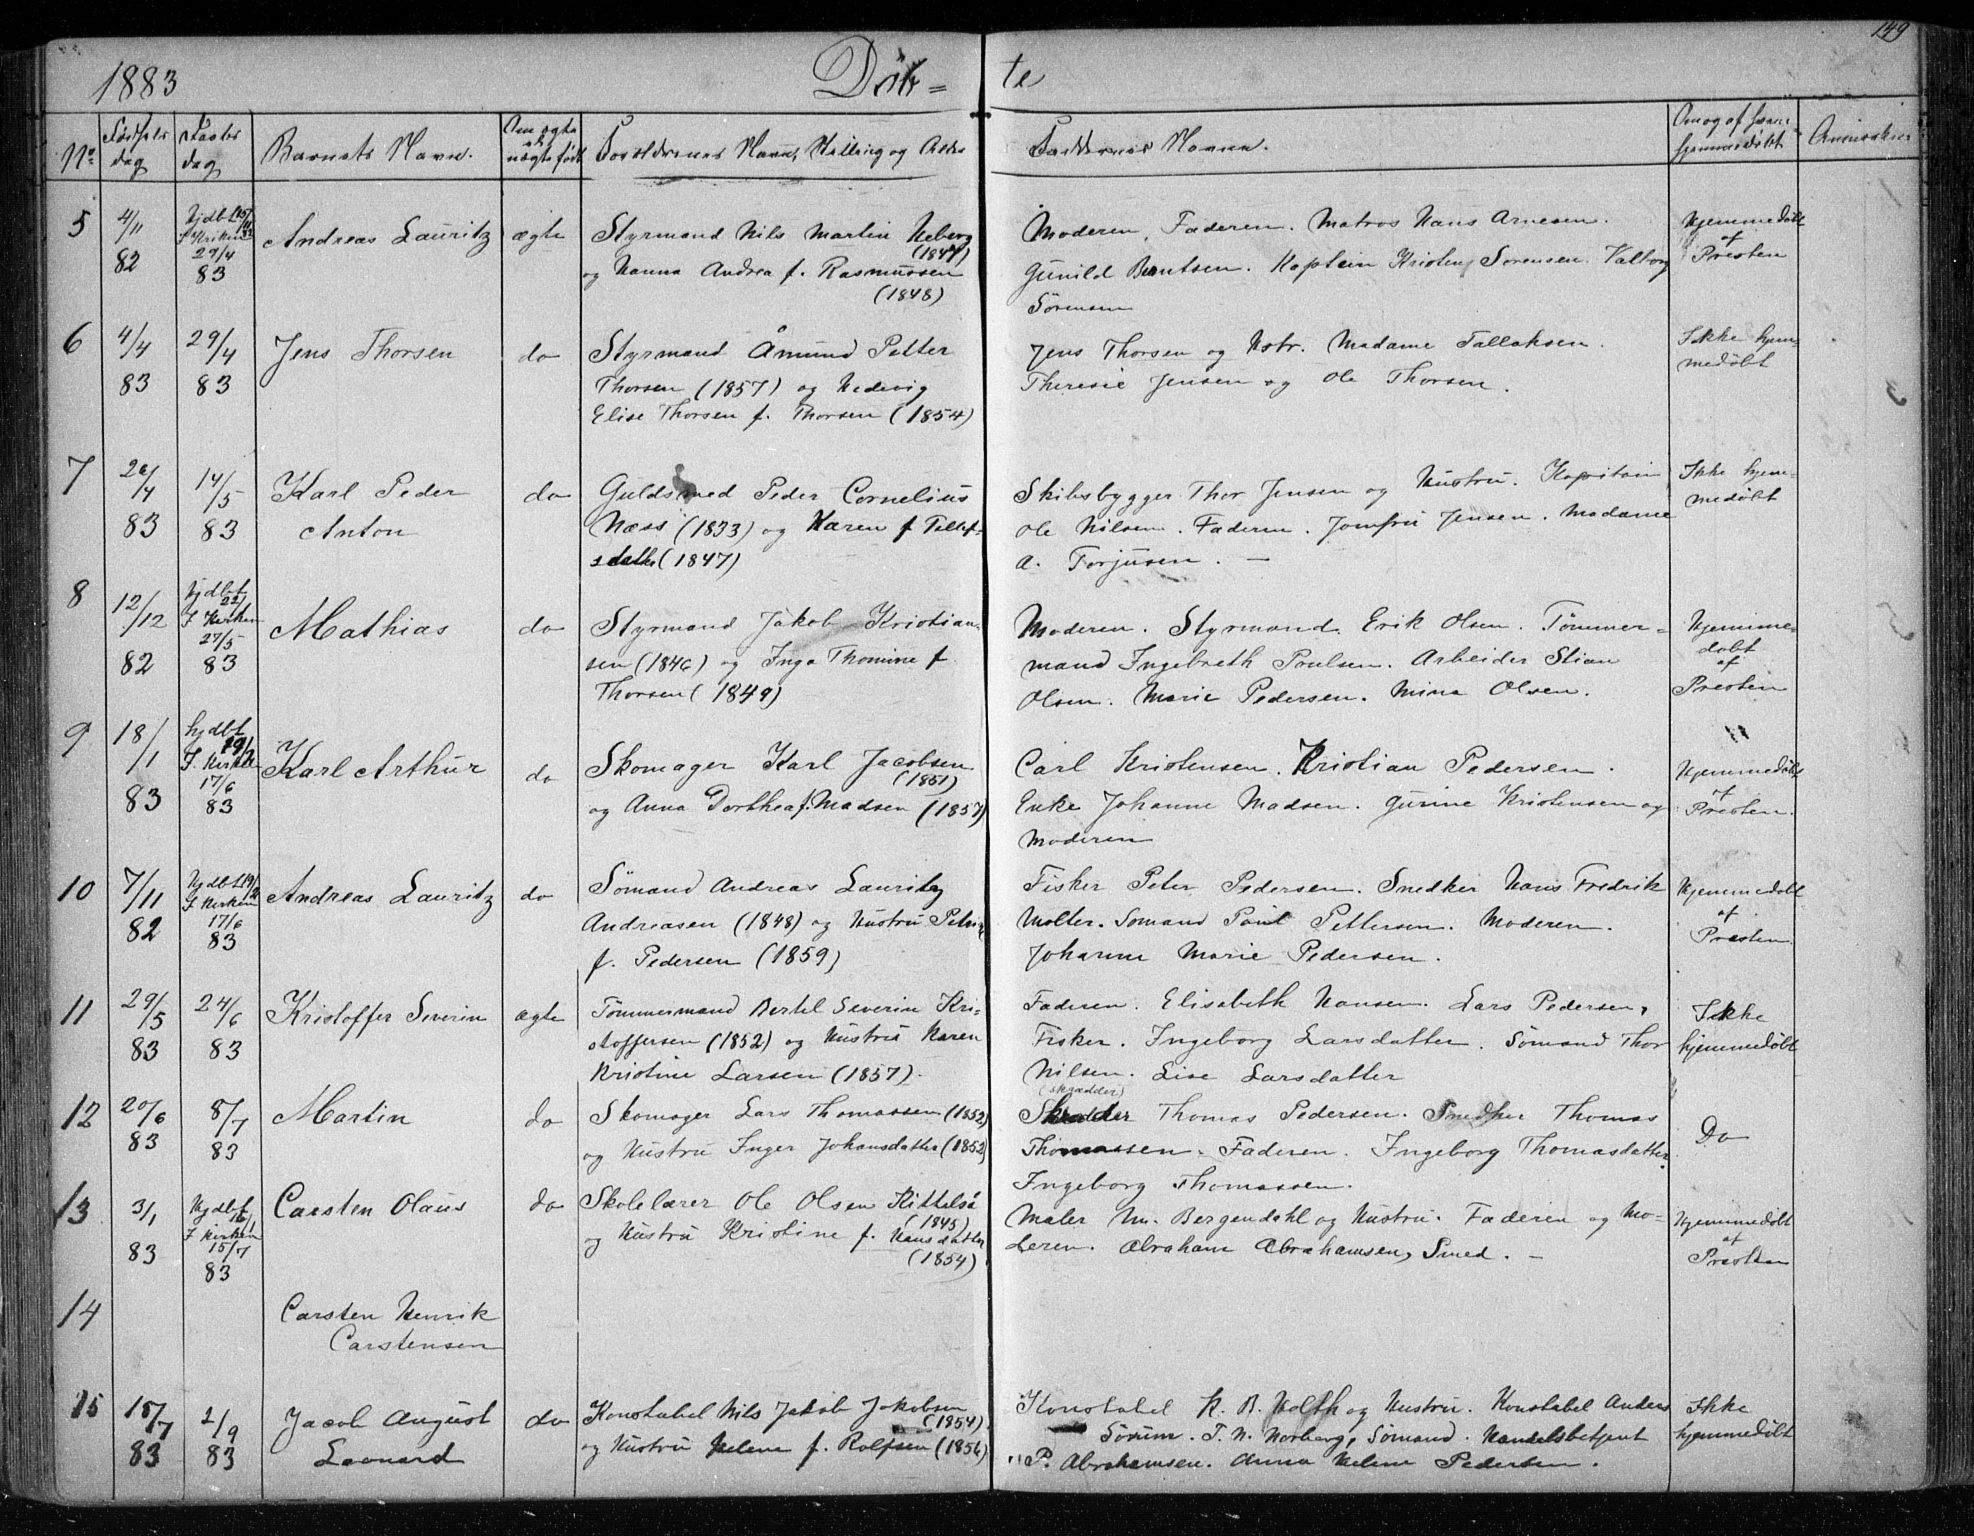 149
1883 Døb= te
No Fødsels dag Daabs dag Barnets Navn. Om ægte el. uægte født Forældrenes Navn, Stilling og Alder Faddernes Navne. Om og af hvem hjemmedøbt
5 4/11 82 Hjdbt 15/11 82 I Kirken 29/4 83 Andreas Lauritz ægte Styrmand Nils Martin Heberg (1847)
og Hanna Andrea f. Rasmussen (1848)
Moderen, Faderen. Matros Hans Arnesen.
Gunild Berntsen. Kaptein Kristen Sørensen. Valborg
Sørensen
Hjemmedøbt af Presten
6 4/4 83 29/4 83 Jens Thorsen do Styrmand Åmund Petter
Thorsen (1857) og Hedevig
Elise Thorsen f. Thorsen (1854)
Jens Thorsen og Hstr. Madame Tallaksen.
Theresie Jensen og Ole Thorsen.
Ikke hjemmedøbt
7 83 14/5 83 Karl Peder
Anton
do Guldsmed Peder Cornelius
Næss (1833) og Karen f. Tellefs
datter (1847)
Skibsbygger Thor Jensen og Hustru. Kapitain
Ole Nilsen. Faderen. Jomfru Jensen. Madame
A. Torjusen. —
Ikke hjemmedøbt
8 12/12 82 Hjdbt 22/1 I Kirken 27/5 83 Mathias do Styrmand Jakob Kristian-
sen (1846) og Inga Thomine f.
Thorsen (1849)
Moderen. Styrmand. Erik Olsen. Tømmer=
mand Ingebreth Poulsen. Arbeider Stian
Olsen. Marie Pedersen. Mina Olsen.
Hjemmedøbt af Presten
9 18/1 83 hjdbt I Kirken 17/6 83 Karl Arthur do Skomager Karl Jacobsen (1851)
og Anna Dorthea f. Madsen (1857)
Carl Kristensen. Kristian Pedersen.
Enke Johanne Madsen. Gurine Kristensen og
Moderen
Hjemmedøbt af Presten.
10 7/11 82 Hjdbt 19/2 I Kirken 17/6 83 Andreas Lauritz do Sømand Andreas Lauritz
Andreasen (1848) og Hustru Petrine
f. Pedersen (1859)
Fisker Peter Pedersen. Snedker Hans Fredrik
Molter. Sømand Poul Pettersen. Moderen.
Johanne Marie Pedersen.
Hjemmedøbt af Presten
11 29/5 83 24/6 83 Kristoffer Severin ægte Tømmermand Bertel Severin Kri-
stoffersen (1852) og Hustru Karen
Kristine Larsen (1857).
Faderen. Elisabeth Hansen. Lars Pedersen,
Fisker. Ingeborg Larsdatter. Sømand Thor
Nilsen. Lise Larsdatter
Ikke hjemmedøbt
12 20/6 83 8/7 83 Martin do Skomager Lars Thomassen (1852)
og Hustru Inger Johansdatter (1852)
(skrædder)
Skrædder Thomas Pedersen. Snedker Thomas
Thomassen. Faderen. Ingeborg Thomasdatter.
Ingeborg Thomassen.
Do
13 3/1 83 Hjdbt 16/1 I Kirken 15/7 83 Carsten Olaus do Skolelærer Ole Olsen Kittelsø (1845)
og Hustru Kristine f. Hansdatter (1854)
Maler M. Bergendahl og Hustru. Faderen og Mo-
deren. Abraham Abrahamsen, Smed. —
Hjemmedøbt af Presten
14 Carsten Henrik
Carstensen
15 15/7 83 2/9 83 Jacob August
Leonard
do Konstabel Nils Jakob Jakobsen (1854)
og Hustru Helene f. Rolfsen (1854)
Konstabel K. B. Holth og Hustru. Konstabel Anders
Sørum. T. N. Norberg, Sømand. Handelsbetjent
P. Abrahamsen. Anna Helene Pedersen.
Ikke hjemmedøbt